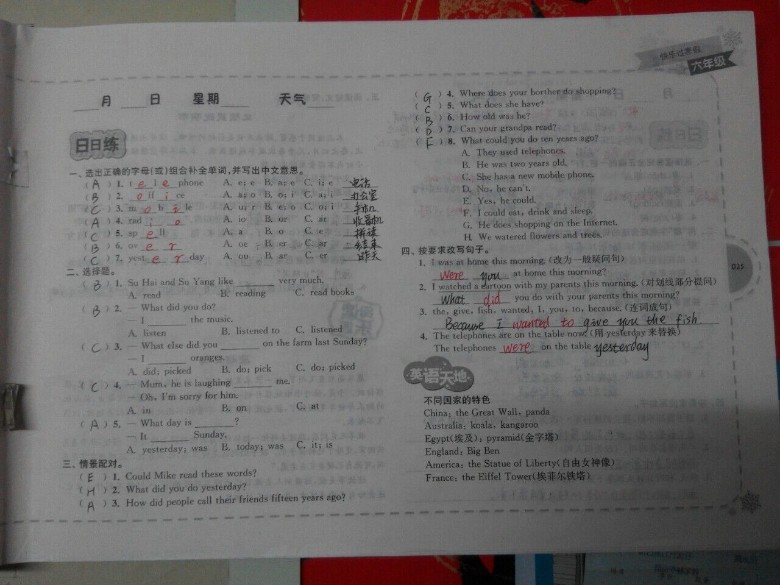 快乐过暑假
六年级
月 日 星期 天气
日日练
一、选出正确的字母(或)组合补全单词,并写出中文意思。
( A ) 1. t e l e phone A. e; e B. ar; e C. i; e 电话
( B ) 2. o ff i ce A. a; o B. o; i C. a; i 办公室
( C ) 3. m o b i le A. u; r B. e; o C. o; i 手机
( A ) 4. rad i o A. io B. or C. ar 收音机
( C ) 5. sp e ll A. a B. o C. e 拼读
( B ) 6. ov e r A. oe B. er C. ar 结束
( C ) 7. yest e r day A. ou B. ar C. er 昨天
二、选择题。
( B ) 1. Su Hai and Su Yang like ______ very much.
A. read B. reading C. read books
( B ) 2. — What did you do?
— I ______ the music.
A. listen B. listened to C. listened
( C ) 3. — What else did you ______ on the farm last Sunday?
— I ______ oranges.
A. did; picked B. do; pick C. do; picked
( C ) 4. — Mum, he is laughing ______ me.
— Oh, I'm sorry for him.
A. in B. on C. at
( A ) 5. — What day is ______?
— It ______ Sunday.
A. yesterday; was B. today; was C. it; is
三、情景配对。
( E ) 1. Could Mike read these words?
( H ) 2. What did you do yesterday?
( A ) 3. How did people call their friends fifteen years ago?
( G ) 4. Where does your borther do shopping?
( C ) 5. What does she have?
( B ) 6. How old was he?
( D ) 7. Can your grandpa read?
( F ) 8. What could you do ten years ago?
A. They used telephones.
B. He was two years old.
C. She has a new mobile phone.
D. No, he can't.
E. Yes, he could.
F. I could eat, drink and sleep.
G. He does shopping on the Internet.
H. We watered flowers and trees.
四、按要求改写句子。
1. I was at home this morning. (改为一般疑问句)
Were you at home this morning?
2. I watched a cartoon with my parents this morning. (对划线部分提问)
What did you do with your parents this morning?
3. the, give, fish, wanted, I, you, to, because. (连词成句)
Because I wanted to give you the fish
4. The telephones are on the table now. (用 yesterday 来替换)
The telephones were on the table yesterday
英语天地
不同国家的特色
China: the Great Wall, panda
Australia: koala, kangaroo
Egypt(埃及): pyramid(金字塔)
England: Big Ben
America: the Statue of Liberty(自由女神像)
France: the Eiffel Tower(埃菲尔铁塔)
025